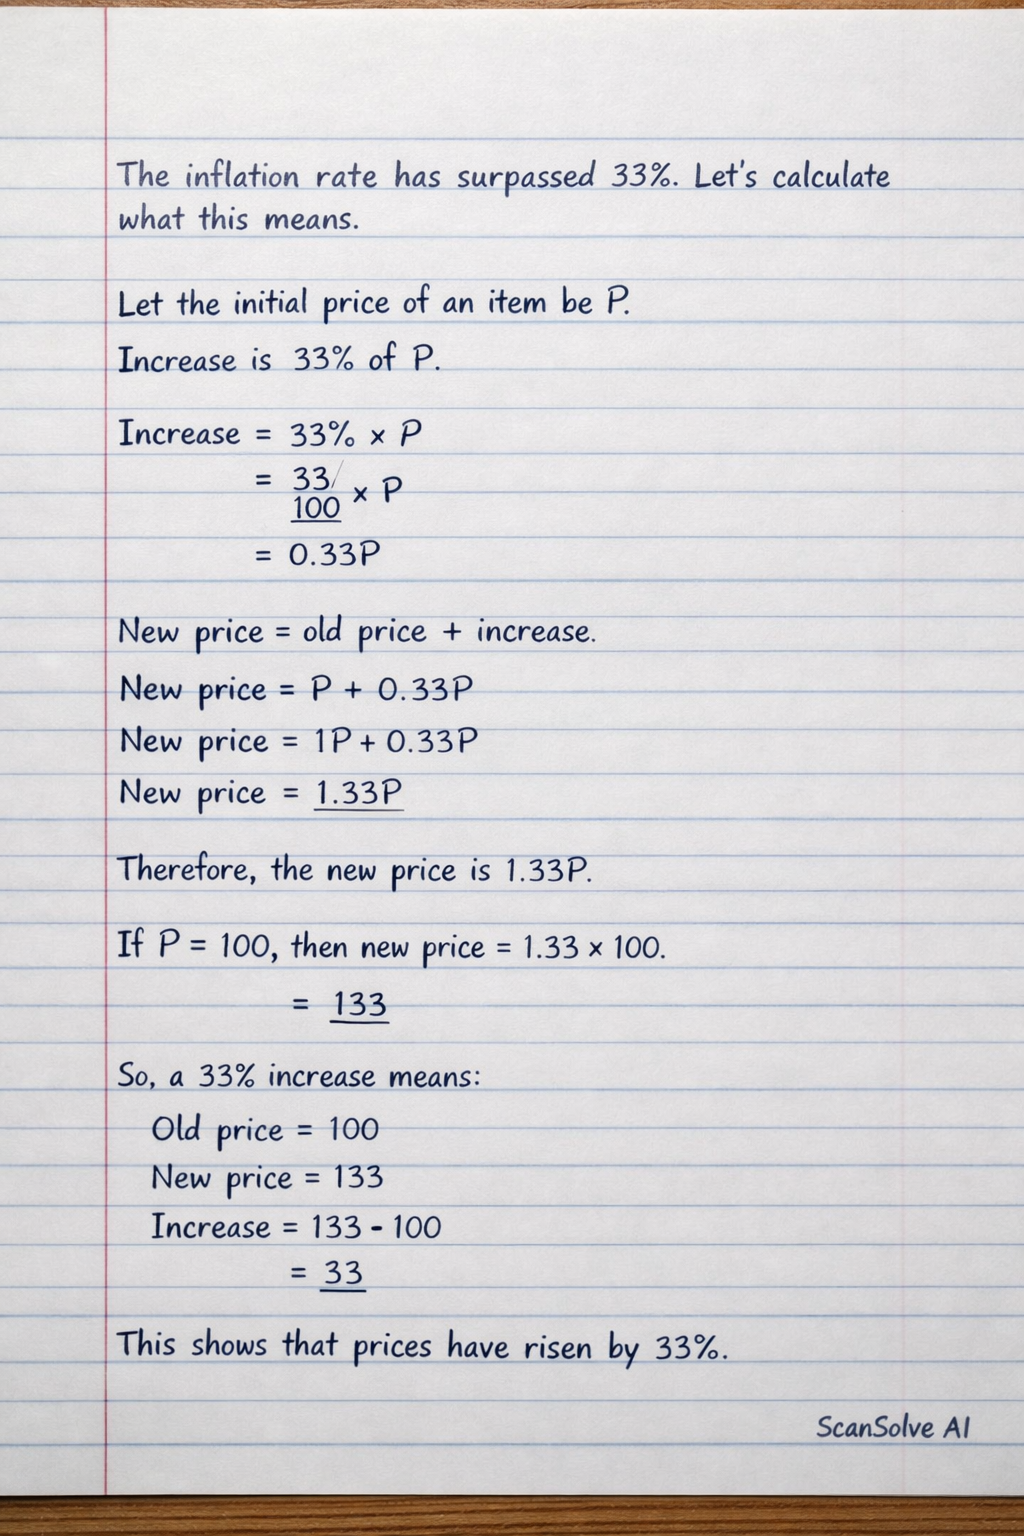 The inflation rate has surpassed 33%. Let's calculate
what this means.
Let the initial price of an item be P.
Increase is 33% of P.
Increase = 33% × P
= 33/
100 × P
= 0.33P
New price = old price + increase.
New price = P + 0.33P
New price = 1P + 0.33P
New price = 1.33P
Therefore, the new price is 1.33P.
If P = 100, then new price = 1.33 × 100.
= 133
So, a 33% increase means:
Old price = 100
New price = 133
Increase = 133 - 100
= 33
This shows that prices have risen by 33%.
ScanSolve AI